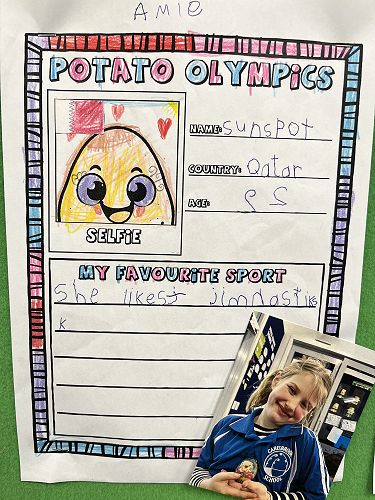 AMIE
POTATO OLYMPICS
NAME: sunspot
COUNTRY: Qatar
AGE:
SELFIE
MY FAVOURITE SPORT
She likes jimnastiks
k